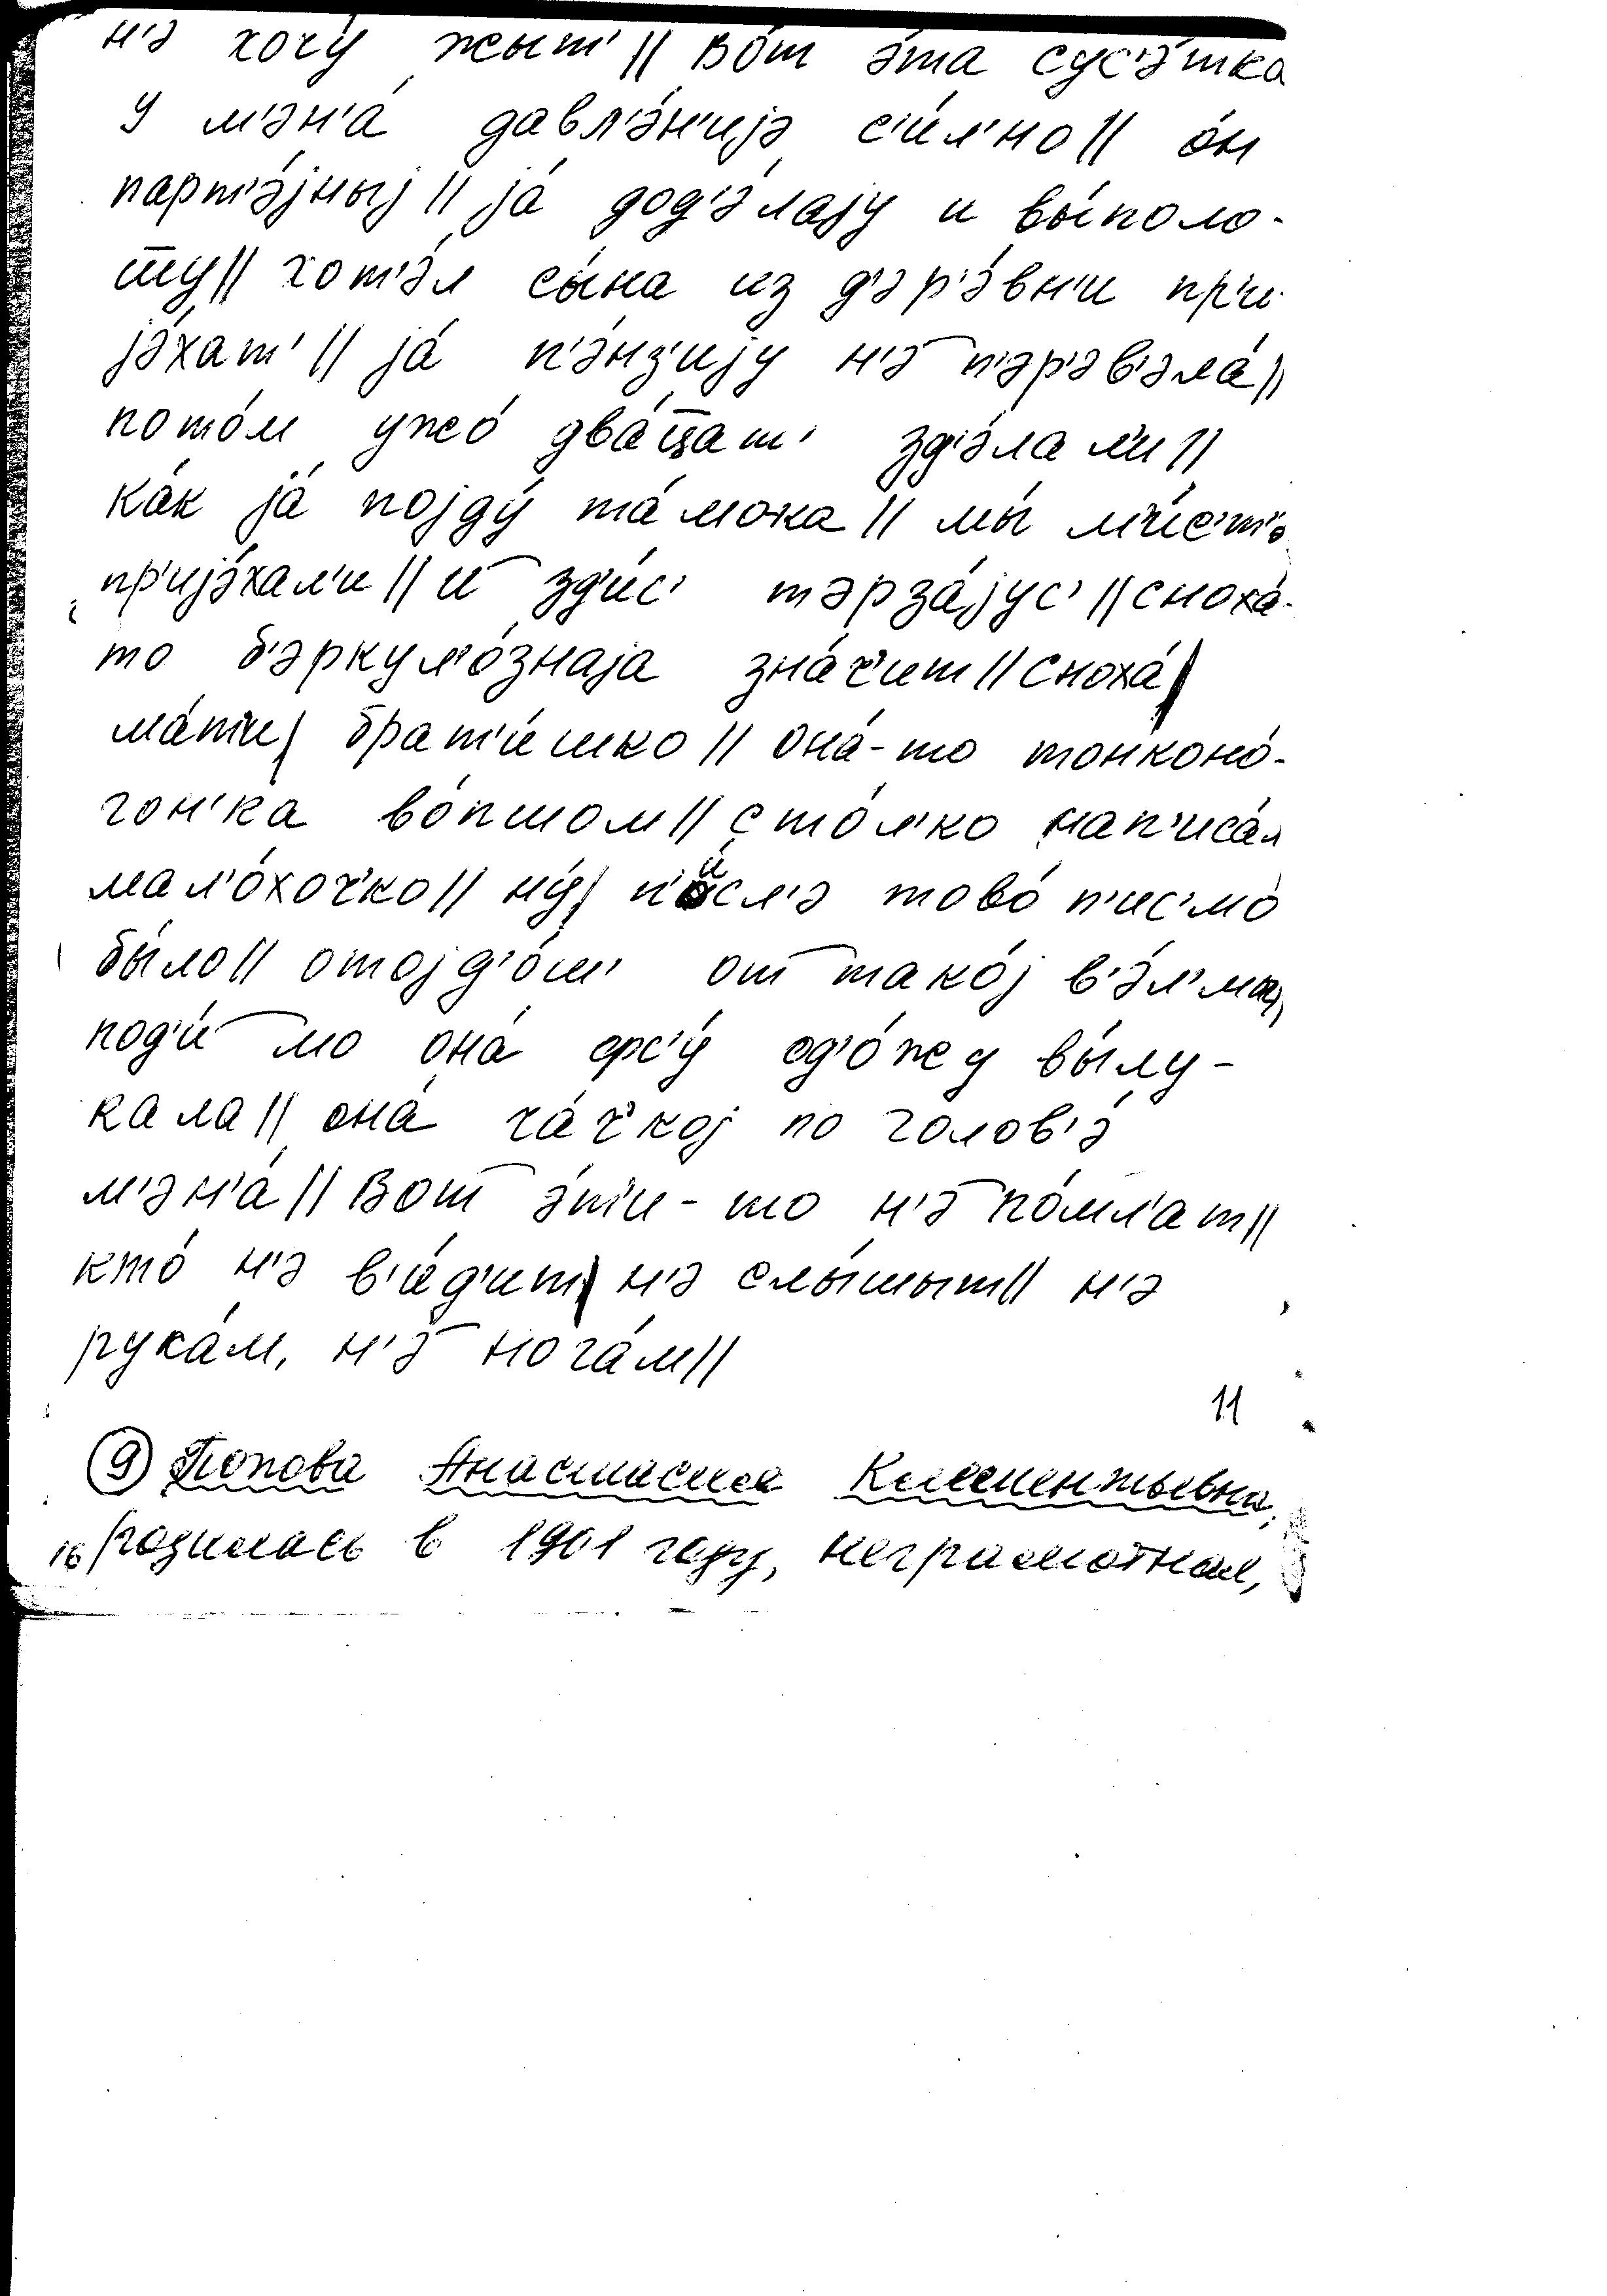 н'э хочу́ жыт' || во́т э́та сус'э́тка
у м'эн'а́ давл'э́н'иjэ с'и́л'но || о́н
парт'э́jныj || jа́ дод'э́лаjу и вы́поло-
ту || хот'э́л сы́на из д'эр'э́вн'и пр'и-
jэ́хат' || jа́ п'э́нз'иjу н'э п'эр'эв'эла́ ||
пото́м ужо́ два́цат' зд'э́лал'и ||
ка́к jа́ поjду́ та́мока || мы́ м'и́с'т'э
пр'иjэ́хал'и || и зд'и́с' тэрза́jус' || сноха́-
то б'эркул'о́знаjа зна́ч'ит || сноха́ |
ма́т'и | брат'и́шко || она́-то тонконо́-
гон'ка во́пшом || сто́л'ко нап'иса́л
мал'о́хоч'ко || ну́ | п'и́сл'э тово́ п'ис'мо́
бы́ло || отоjд'о́ш' от тако́j в'э́л'мы ||
под'и́ мо она́ фс'у́ од'о́жу вы́лу-
кала || она́ ча́ч'коj по голов'э́
м'эн'а́ || вот э́т'и-то н'э по́мл'ат ||
кто́ н'э в'и́д'ит | н'э слы́шыт || н'э
рука́м, н'э нога́м ||
11
9 Попова Анастасия Климентьевна,
16 родилась в 1901 году, неграмотная,